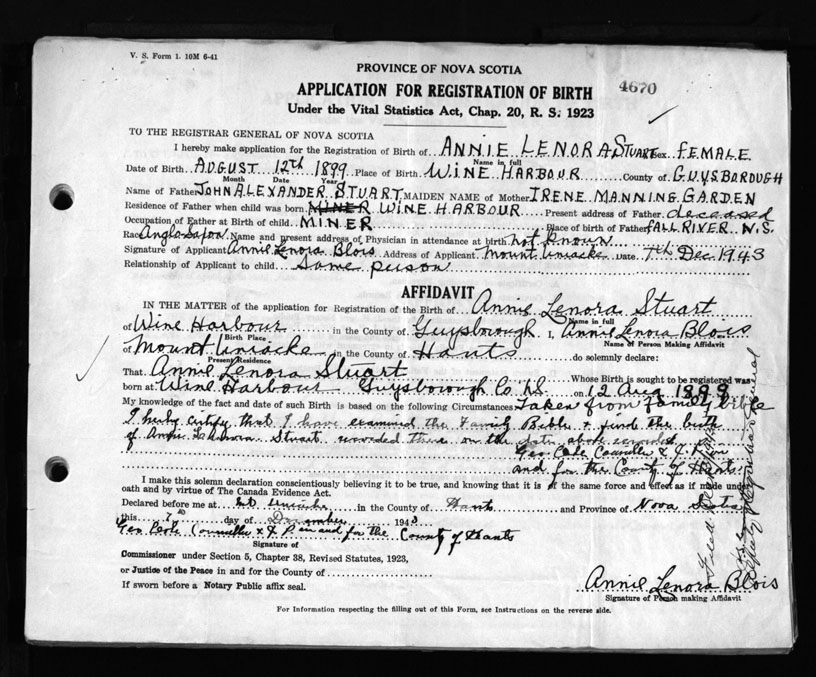 V. S. Form 1. 10M 6-41
PROVINCE OF NOVA SCOTIA
APPLICATION FOR REGISTRATION OF BIRTH
4670
Under the Vital Statistics Act, Chap. 20, R. S. 1923
TO THE REGISTRAR GENERAL OF NOVA SCOTIA
I hereby make application for the Registration of Birth of ANNIE LENORA STUART Sex FEMALE
Name in full
Date of Birth AUGUST 12th 1899 Place of Birth WINE HARBOUR County of GUYSBOROUGH
Month Date Year
Name of Father JOHN ALEXANDER STUART MAIDEN NAME of Mother IRENE MANNING GARDEN
Residence of Father when child was born MINER WINE HARBOUR Present address of Father deceased
Occupation of Father at Birth of child MINER Place of birth of Father FALL RIVER N.S.
Race Anglo Saxon Name and present address of Physician in attendance at birth not known
Signature of Applicant Annie Lenora Blois Address of Applicant Mount Uniacke Date 7th Dec. 1943
Relationship of Applicant to child Same person
AFFIDAVIT
IN THE MATTER of the application for Registration of the Birth of Annie Lenora Stuart
Name in full
of Wine Harbour in the County of Guysborough I, Annie Lenora Blois
Birth Place Name of Person Making Affidavit
of Mount Uniacke in the County of Hants do solemnly declare:
Present Residence
That Annie Lenora Stuart Whose Birth is sought to be registered was
born at Wine Harbour Guysborough Co N.S. on 12 Aug 1899
My knowledge of the fact and date of such Birth is based on the following Circumstances Taken from family bible
I hereby certify that I have examined the Family Bible & find the birth
of Annie Lenora Stuart recorded there on the date above
Geo Cole Councillor & J.
and for the County of Hants
I make this solemn declaration conscientiously believing it to be true, and knowing that it is of the same force and effect as if made under
oath and by virtue of The Canada Evidence Act.
Declared before me at Mt Uniacke in the County of Hants and Province of Nova Scotia
this 7 day of December 1943
Geo Cole Councillor & J P in and for the County of Hants
Signature of
Commissioner under Section 5, Chapter 38, Revised Statutes, 1923,
or Justice of the Peace in and for the County of
If sworn before a Notary Public affix seal.
Annie Lenora Blois
Signature of Person making Affidavit
Deputy Registrar General
For Information respecting the filling out of this Form, see Instructions on the reverse side.